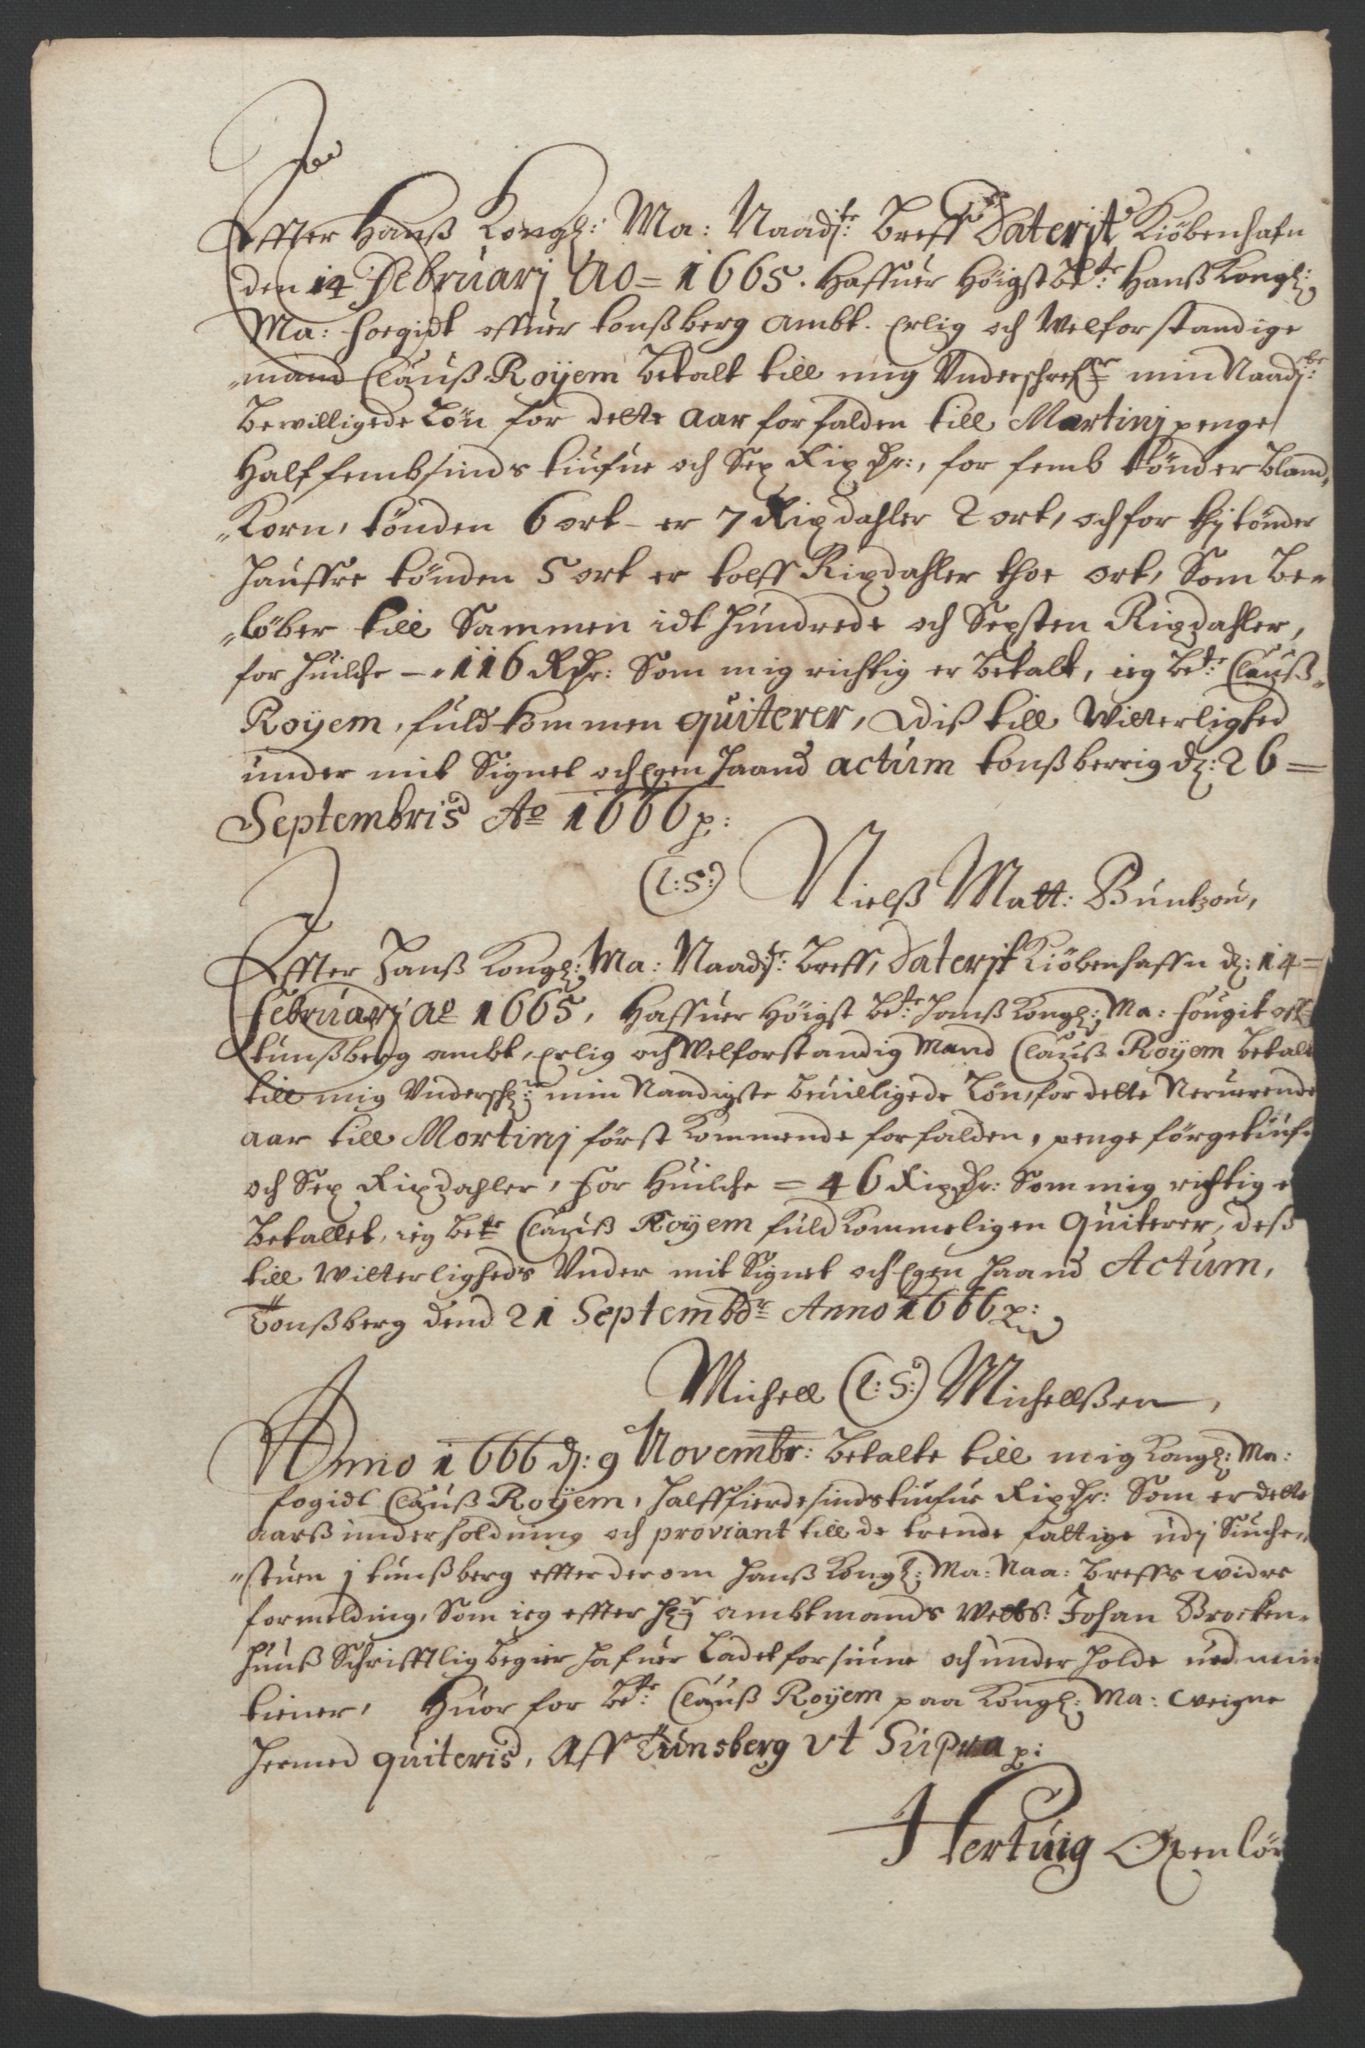 Effter Hanß Kongl: Ma: Naadste: Breff Daterit Kiøbenhafn
den 14 Februarj Ao= 1665. Haffuer Høigstbete: Hanß Kongl:
Ma: foegidt offuer tonßberg Ambt. Erlig och Welforstandige
"mand Clauß Royem betalt till mig Underschrefne min Naadste:
Bewilligede Løn for dette Aar forfalden till Martinj penge
Halffembsinds tiufue och Sex Rixdr:, for femb tønder bland„
"Korn, tønden 6 ort - er 7 Rixdahler 2 ort, och for thj tønder
hauffre tønden 5 ort er tolff Rixdahler thoe ort, Som be„
"løber till Sammen idt hundrede och Sexsten Rixdahler,
for huilche — 116 Rdr: Som mig richtig er betalt, ieg bete: Clauß„
Royem, fuldkommen quiterer, Diß till Witterlighed
under mit Signet och Egen haand Actum tonßberrig d: 26=
Septembris Ao 1666 p:
(L:S:) Nielß Matt: Buntzou,
Effter hanß Kongl: Ma: Naadste: breff, Daterit Kiøbenhaffn d: 14=
Februarj Ao 1665, Haffuer Høigst bete: hanß Kongl: Ma: fougit off:
tunßberg ambt, Erlig och Welforstandig Mand Clauß Royem betalt
till mig Underschr: min Naadigste beuilligede Løn, for dette Neruerende
aar till Mortinj først Kommende forfalden, penge førgetiufe
och Sex Rixdahler, for Huilche = 46 Rixdr: Som mig richtig e
betallet, ieg bete Clauß Royem fuldkommeligen Quiterer, deß
till Witterligheds Under mit Signet och Egen haand Actum,
Tonßberg dend 21 Septembr Anno 1666 p:
Michell (L:S:) Michellßen,
Anno 1666 d: 9 Novembr: betalte till mig Kongl: Ma:
fogidt Clauß Royem, halfffierdesindstiufue Rixdr: Som er dette
aarß underholdning och proviant till de trende fattige udj Siuche„
"stuen j tunßberg effter derom hanß Kongl: Ma: Naa: breffs widre
formelding, Som ieg effter Hr ambtmands Welbs: Johan Brocken„
huuß Schrifftlig begier hafuer ladet forsiune och underholde ued min
tiener, Huor for bete: Clauß Royem paa Kongl: Ma: weigne
hermed quiteris, Aff Tunsberg Ut Supra p:
Hertuig Oxenlør